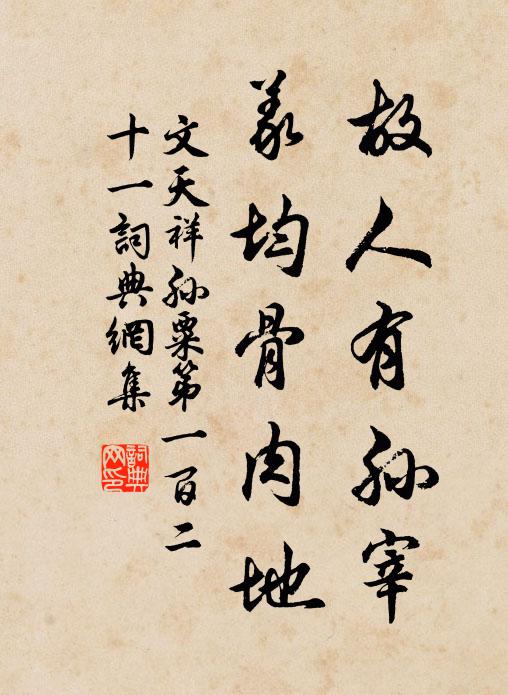 故人有孙宰
義均骨肉地
文天祥孙粟第一百二
十一詞典網集
詞典
网印